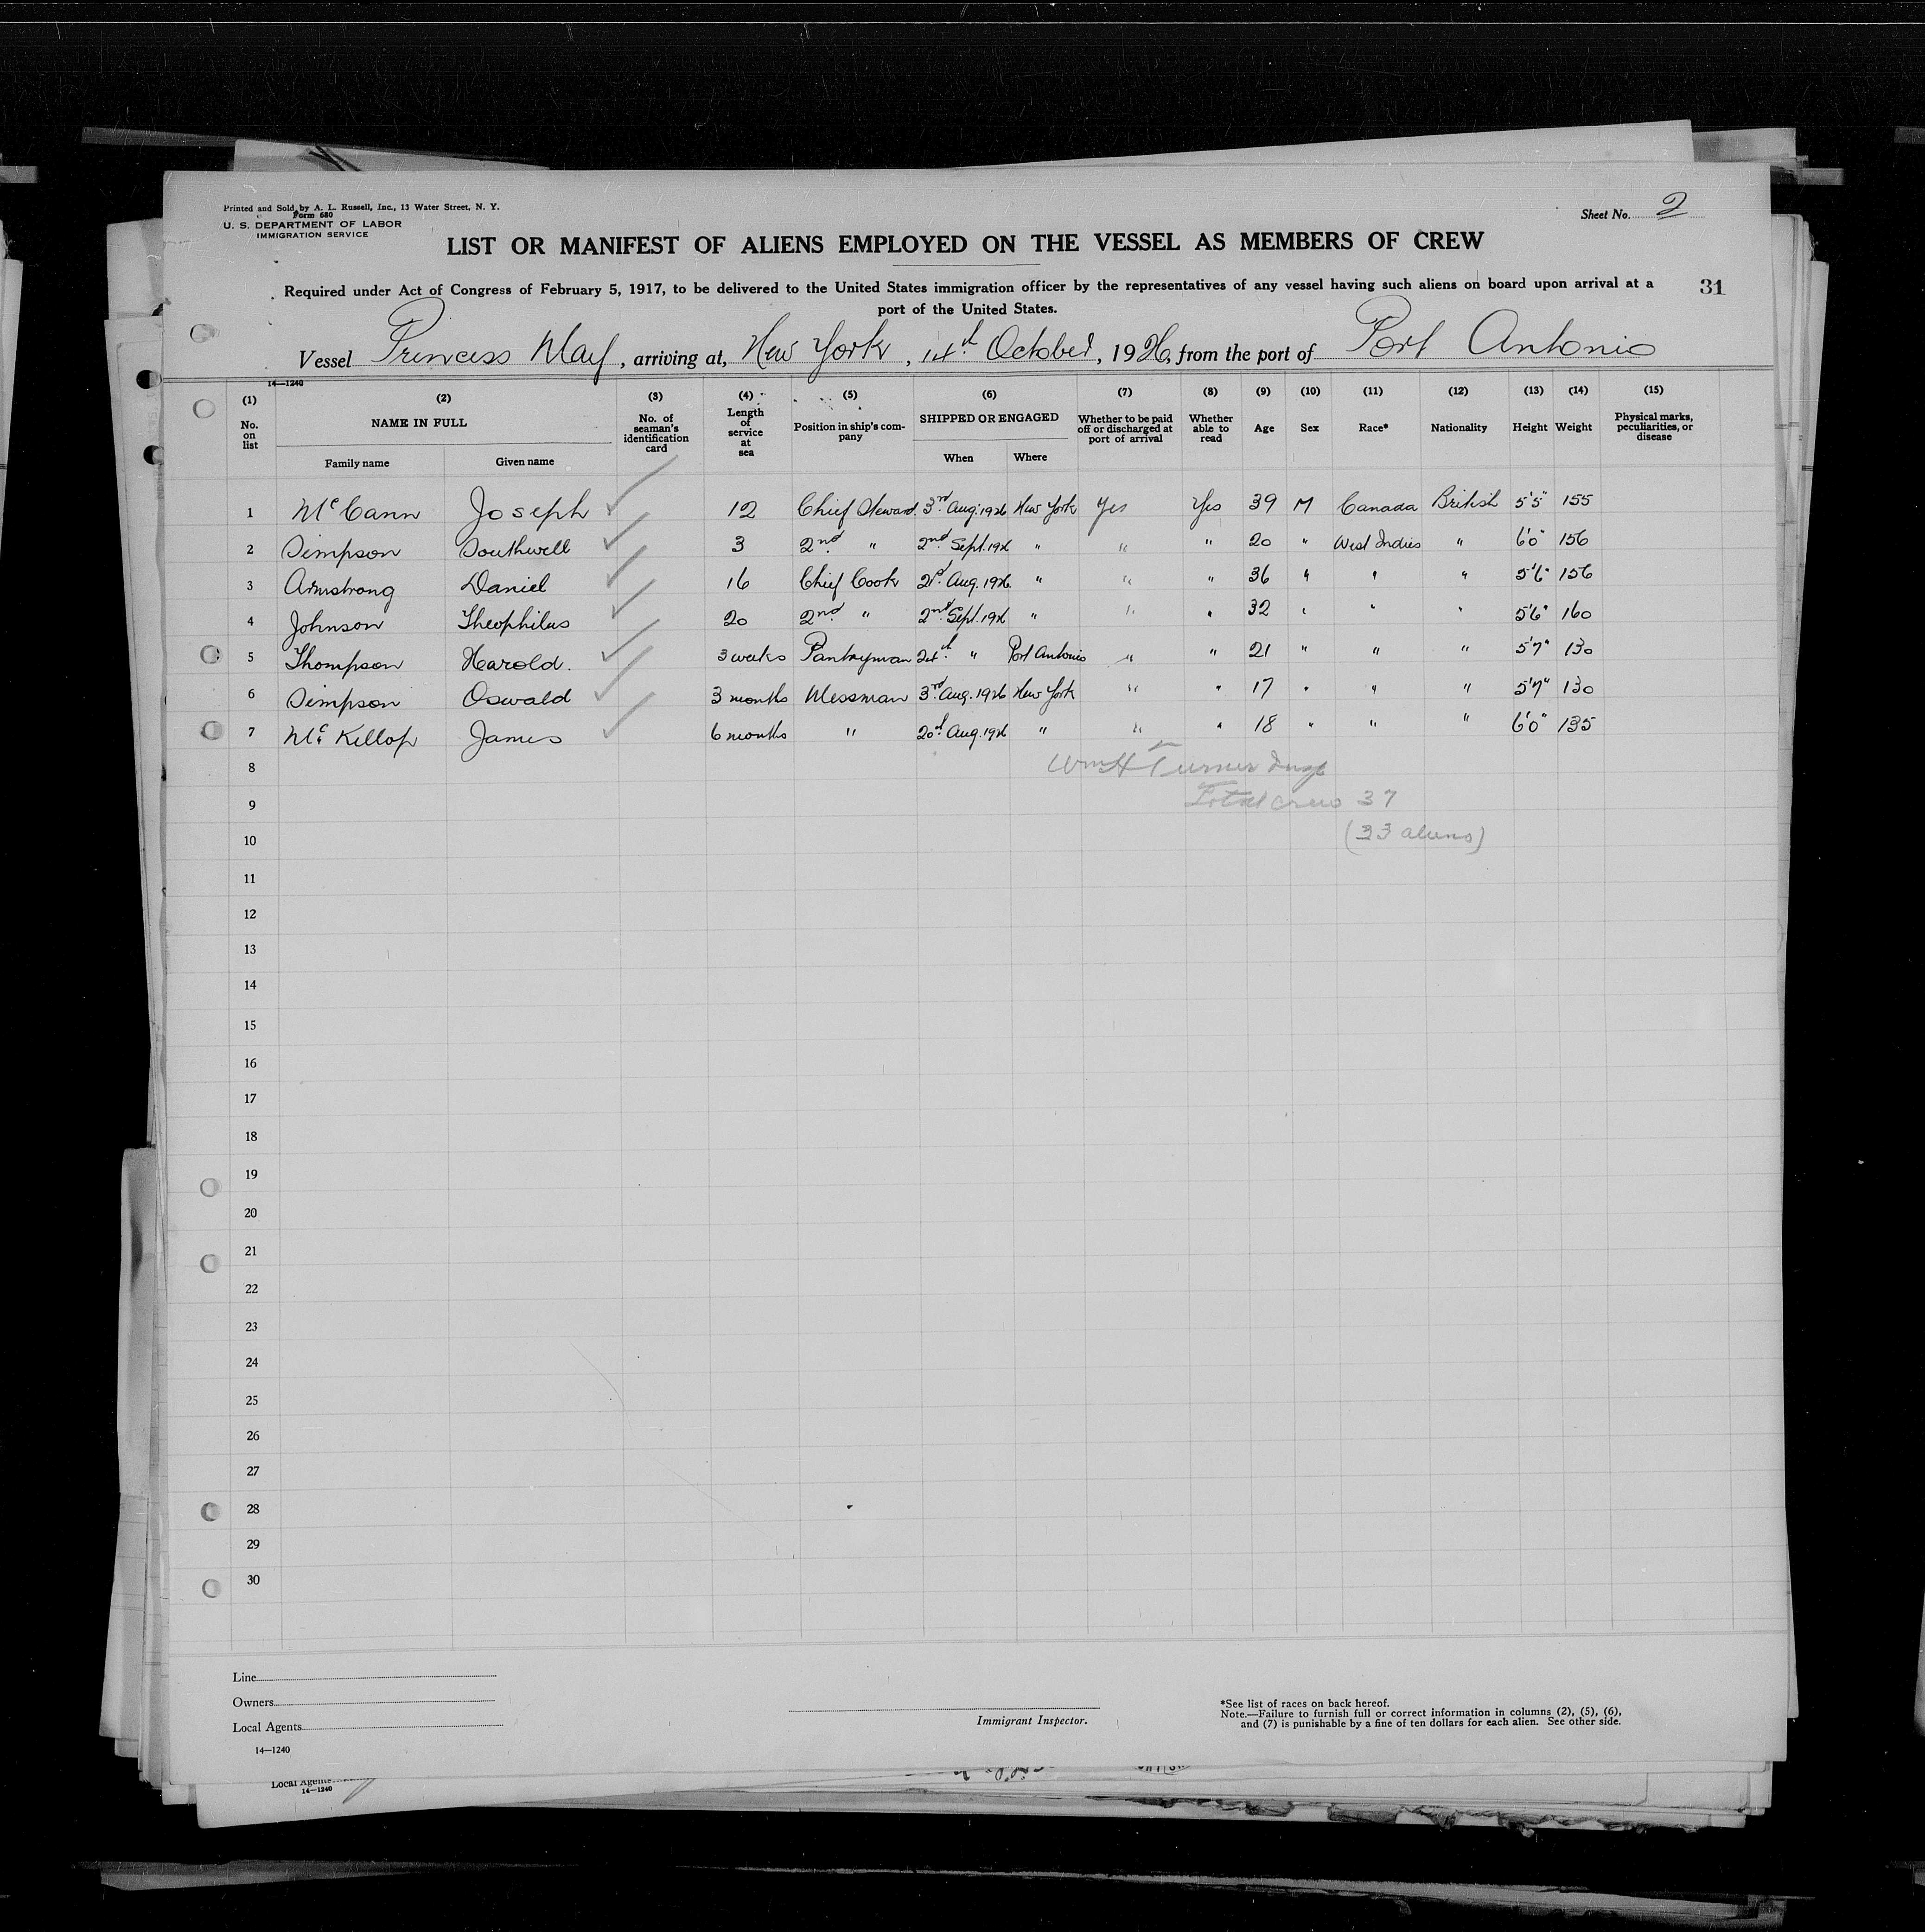 Printed and Sold by A. L. Russell, Inc., 13 Water Street, N. Y.
Form 680
U. S. DEPARTMENT OF LABOR
IMMIGRATION SERVICE
Sheet No. 2
LIST OR MANIFEST OF ALIENS EMPLOYED ON THE VESSEL AS MEMBERS OF CREW
Required under Act of Congress of February 5, 1917, to be delivered to the United States immigration officer by the representatives of any vessel having such aliens on board upon arrival at a
port of the United States.
31
Vessel Princess May, arriving at, New York, 14th October, 1926, from the port of Port Antonio
14—1240
(1) No. on list
(2) NAME IN FULL
Family name Given name
(3) No. of seaman's identification card
(4) Length of service at sea
(5) Position in ship's company
(6) SHIPPED OR ENGAGED
When Where
(7) Whether to be paid off or discharged at port of arrival
(8) Whether able to read
(9) Age
(10) Sex
(11) Race*
(12) Nationality
(13) Height
(14) Weight
(15) Physical marks, peculiarities, or disease
1 McCann Joseph 12 Chief Steward 3rd Aug. 1926 New York Yes Yes 39 M Canada British 5'5" 155
2 Simpson Southwell 3 2nd " 2nd Sept. 1926 " " " 20 " West Indies " 6'0" 156
3 Armstrong Daniel 16 Chief Cook 21st Aug. 1926 " " " 36 " " " 5'6" 156
4 Johnson Theophilus 20 2nd " 2nd Sept. 1926 " " " 32 " " " 5'6" 160
5 Thompson Harold. 3 weeks Pantryman 24th " Port Antonio " " 21 " " " 5'7" 130
6 Simpson Oswald 3 months Messman 3rd Aug. 1926 New York " " 17 " " " 5'7" 130
7 Mc Killop James 6 months " 20th Aug. 1926 " " " 18 " " " 6'0" 135
8 Wm H Turner Insp
9 Total crew 37
10 (33 aliens)
11
12
13
14
15
16
17
18
19
20
21
22
23
24
25
26
27
28
29
30
Line
Owners
Local Agents
14—1240
Immigrant Inspector.
*See list of races on back hereof.
Note.—Failure to furnish full or correct information in columns (2), (5), (6),
and (7) is punishable by a fine of ten dollars for each alien. See other side.
Local Agents
14—1240